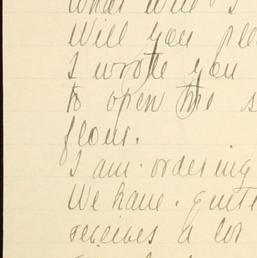 What will I
Will you
I wrote you
to open the s
flour.
I am ordering
We have quite
receives a